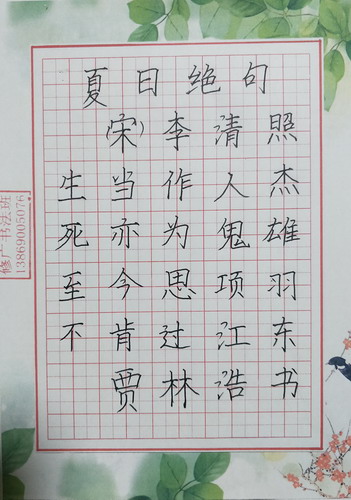 夏日绝句
(宋)李清照
生当作人杰
死亦为鬼雄
至今思项羽
不肯过江东
贾林浩书
修广书法班
13869005076